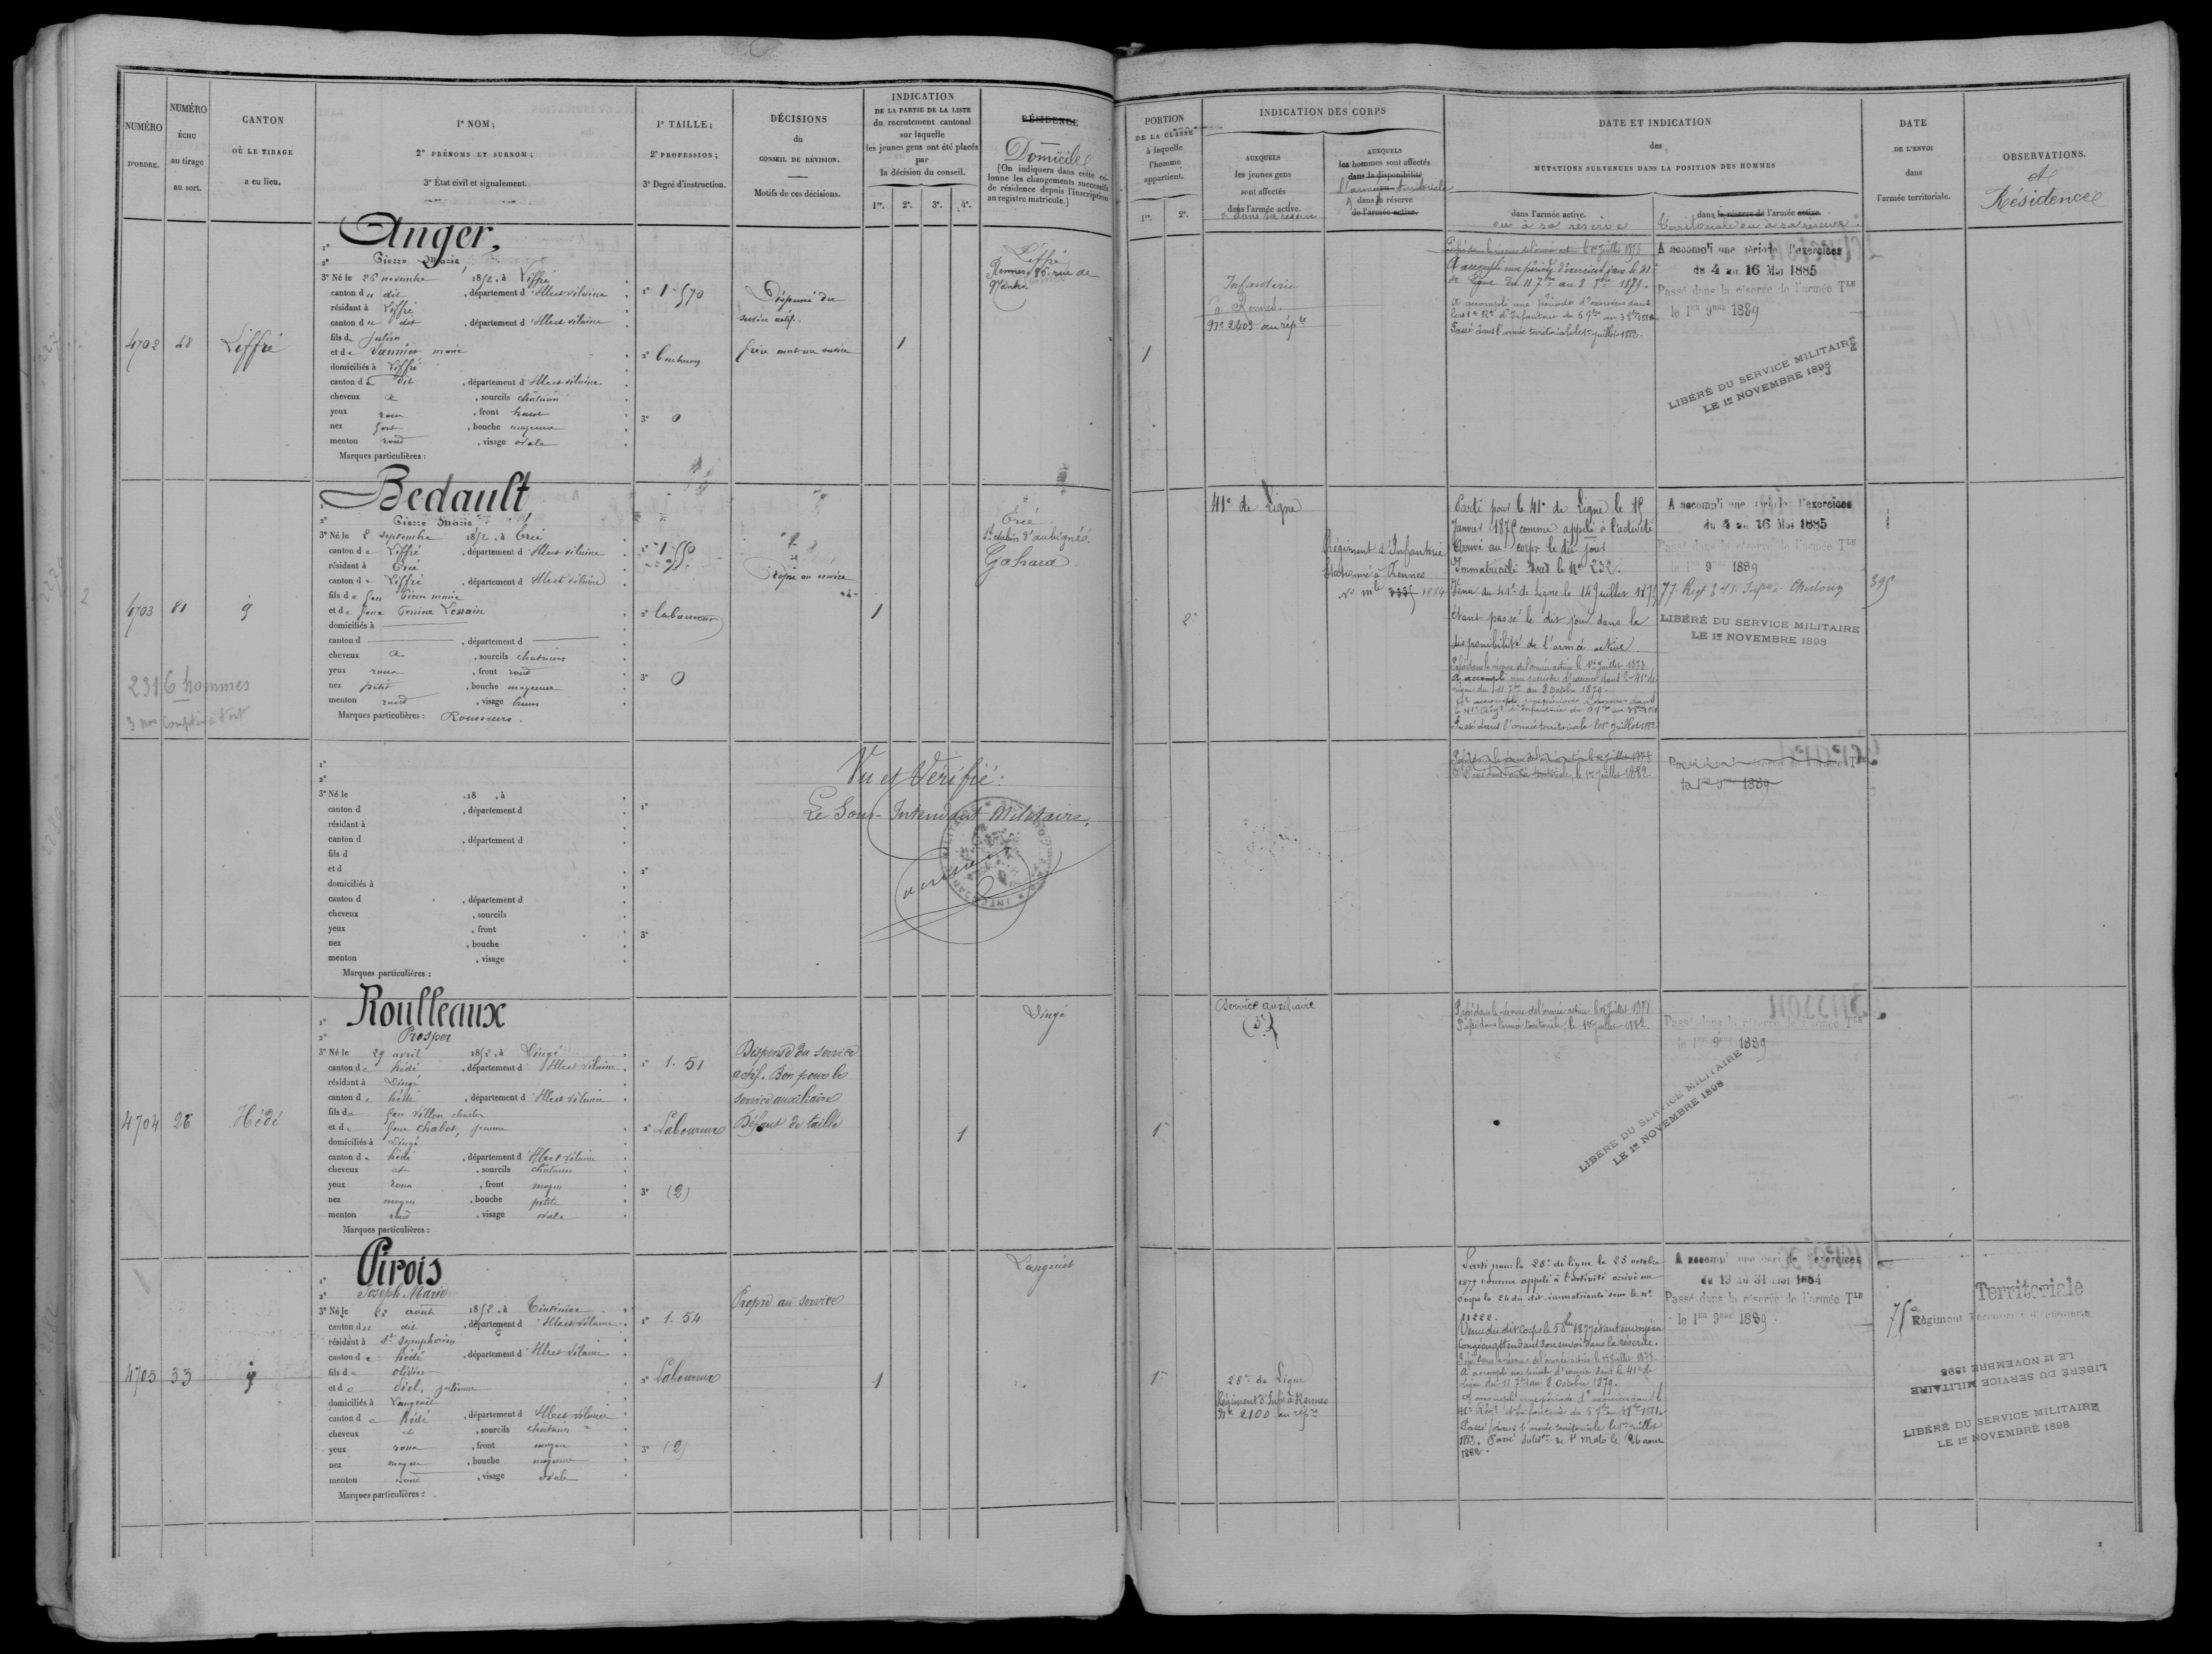 NUMÉRO
D'ORDRE.
NUMÉRO
ÉCHU
au tirage
au sort.
CANTON
OÙ LE TIRAGE
a eu lieu.
1º NOM;
2º PRÉNOMS ET SURNOM;
3º État civil et signalement.
1º TAILLE;
2º PROFESSION;
3º Degré d'instruction.
DÉCISIONS
du
CONSEIL DE RÉVISION.
Motifs de ces décisions.
INDICATION
DE LA PARTIE DE LA LISTE
du recrutement cantonal
sur laquelle
les jeunes gens ont été placés
par
la décision du conseil.
1re. 2e. 3e. 4e.
RÉSIDENCE
Domicile
(On indiquera dans cette co-
lonne les changements successifs
de résidence depuis l'inscription
au registre matricule.)
4702
48
Liffré
Anger,
2º Pierre Marie
3º Né le 26 novembre 1852, à Liffré
canton du dit, département d'Ille et vilaine
résidant à Liffré
canton du dit, département d'Ille et vilaine
fils de Julien
et de Vannier marie
domiciliés à Liffré
canton du dit, département d'Ille et vilaine
cheveux et, sourcils châtains
yeux roux, front haut
nez fort, bouche moyenne
menton rond, visage ovale
Marques particulières :
1º 1.570
3º 0
Dispensé du
service actif.
frère mort au service
1
Liffré
Rennes 86, rue de
Nantes
4703
81
Bedault
2º Pierre Marie
3º Né le 8 septembre 1852, à Ercé
canton de Liffré, département d'Ille et vilaine
résidant à Ercé
canton de Liffré, département d'Ille et vilaine
fils de feu Pierre marie
domiciliés à
canton d, département d
cheveux et, sourcils chatains
yeux roux, front rond
nez petit, bouche moyenne
menton rond, visage brun
Marques particulières : Rousseurs.
1º 1.550
2º laboureur
3º 0
Propre au service
1
Ercé
St aubin d'aubigné.
Gahard
2316 hommes
1º
2º
3º Né le 18 , à
canton d , département d
résidant à
canton d , département d
fils d
et d
domiciliés à
canton d , département d
cheveux , sourcils
yeux , front
nez , bouche
menton , visage
Marques particulières :
1º
2º
3º
Vu et Vérifié:
Le Sous-Intendant Militaire,
4704
26
Hédé
Roulleaux
2º Prosper
3º Né le 29 avril 1852, à Dingé
canton de hédé, département d'Ille et vilaine
résidant à Dingé
canton de hédé, département d'Ille et vilaine
fils de feu villou charles
et de feue Chabot, jeanne
domiciliés à Dingé
canton de hédé, département d'Ille et vilaine
cheveux et, sourcils chatains
yeux roux, front moyen
nez moyen, bouche petite
menton rond, visage ovale
Marques particulières :
1º 1.51
2º Laboureur
3º (2)
Dispensé du service
actif. Bon pour le
service auxiliaire
Défaut de taille
1
Dingé
4705
33
Pirois
2º Joseph Marie
3º Né le 22 août 1852, à Tinténiac
canton du dit, département d'Ille et vilaine
résidant à St Symphorien
canton de hédé, département d'Ille et vilaine
fils d olivier
et de Diel, julienne
domiciliés à Langouët
canton de hédé, département d'Ille et vilaine
cheveux et, sourcils chatains
yeux roux, front moyen
nez moyen, bouche moyenne
menton rond, visage ovale
Marques particulières :
1º 1.54
2º Laboureur
3º (2)
Propre au service
1
Langouët
PORTION
DE LA CLASSE
à laquelle
l'homme
appartient.
1re. 2e.
INDICATION DES CORPS
AUXQUELS
les jeunes gens
sont affectés
dans l'armée active.
AUXQUELS
les hommes sont affectés
dans la disponibilité
l'armée territoriale
dans la réserve
de l'armée active.
DATE ET INDICATION
des
MUTATIONS SURVENUES DANS LA POSITION DES HOMMES
dans l'armée active.
ou à sa réserve
dans la réserve de l'armée active.
territoriale ou à sa réserve
DATE
DE L'ENVOI
dans
l'armée territoriale.
OBSERVATIONS.
et
Résidence
1
Infanterie
à Rennes.
Nº 2403 au rép
A accompli une période d'exercices dans le 41
de ligne du 11 7bre au 8 8bre 1879.
Passé dans l'armée territoriale le 1er juillet 1882.
A accompli une période d'exercices
du 4 au 16 Mai 1885
Passé dans la réserve de l'armée TLE
le 1er 9bre 1889
LIBÉRÉ DU SERVICE MILITAIRE
LE 1er NOVEMBRE 1898
2e
41e de Ligne
Régiment d'Infanterie
Stationné à Rennes
Parti pour le 41e de Ligne le 15
Janvier 1875 comme appelé à l'activité
Arrivé au corps le dit jour
Immatriculé sous le Nº 232.
Venu du 41e de Ligne le 14 Juillet 1875
étant passé le dit jour dans la
disponibilité de l'armée active.
Passé dans la réserve de l'armée active le 1er juillet 1878.
A accompli une période d'exercices dans le 41e de
ligne du 11 7bre au 8 Octobre 1879.
Passé dans l'armée territoriale le 1er Juillet 1882
A accompli une période d'exercices
du 4 au 16 Mai 1885
Passé dans la réserve de l'armée TLE
le 1er 9 1889
LIBÉRÉ DU SERVICE MILITAIRE
LE 1er NOVEMBRE 1898
1
Service auxiliaire
Passé dans la réserve de l'armée active le 1er Juillet 1878
Passé dans l'armée territoriale, le 1er juillet 1882.
Passé dans la réserve de l'armée TLE
le 1er 9bre 1889
LIBÉRÉ DU SERVICE MILITAIRE
LE 1er NOVEMBRE 1898
1
28e de Ligne
Régiment d'Infie à Rennes
Nº 2100 au rép
Parti pour le 28e de ligne le 23 octobre
1877 comme appelé à l'activité arrivé au
corps le 24 du dit. immatriculé sous le nº
11222.
congé en attendant son renvoi dans la réserve.
Passé dans la réserve de l'armée active le 1er Juillet 1878
A accompli une période d'exercices dans le 41e de
ligne du 11 7bre au 8 Octobre 1879.
Passé dans l'armée territoriale le 1er juillet
1882. Passé de St Malo le 26 aout
1882.
A accompli une période d'exercices
du 19 au 31 Mai 1884
Passé dans la réserve de l'armée TLE
le 1er 9bre 1889
75e
Régiment Territorial d'Infanterie
Territoriale
LIBÉRÉ DU SERVICE MILITAIRE
LE 1er NOVEMBRE 1898
LIBÉRÉ DU SERVICE MILITAIRE
LE 1er NOVEMBRE 1898